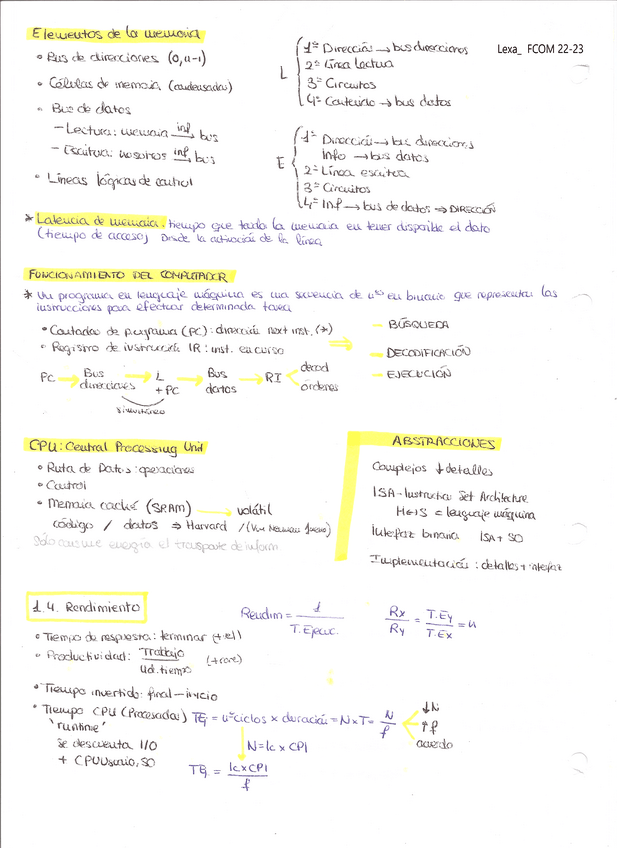 Elementos de la memoria
• Bus de direcciones (0,n-1)
• Células de memoria (condensador)
• Bus de datos
- Lectura: memoria inf→ bus
- Escritura: nosotros inf→ bus
• Líneas lógicas de control
L
1º Dirección → bus direcciones
2º Línea lectura
3º Circuitos
4º Contenido → bus datos
Lexa_ FCOM 22-23
E
1º Dirección → bus direcciones
Info → bus datos
2º Línea escritura
3º Circuitos
4º Inf → bus de datos → DIRECCIÓN
* Latencia de memoria. tiempo que tarda la memoria en tener disponible el dato
(tiempo de acceso) Desde la activación de la línea
FUNCIONAMIENTO DEL COMPUTADOR
* Un programa en lenguaje máquina es una secuencia de nºs en binario que representan las
instrucciones para efectuar determinada tarea
• Contador de programa (PC): dirección next inst. (*)
• Registro de instrucción IR: inst. en curso
- BÚSQUEDA
- DECODIFICACIÓN
- EJECUCIÓN
PC → Bus direcciones → L + PC → Bus datos → RI < decod órdenes
simultáneo
CPU: Central Processing Unit
• Ruta de Datos: operaciones
• Control
• Memoria caché (SRAM) → volátil
código / datos ⇒ Harvard / (Von Neumann 1 bus)
Sólo consume energía el transporte de inform
ABSTRACCIONES
Complejos ↓ detalles
ISA - Instruction Set Architecture
H↔S = lenguaje máquina
Interfaz binaria ISA + SO
Implementación: detalles + interfaz
1.4. Rendimiento
Rendim = 1 / T. Ejecuc.
Rx / Ry = T.Ey / T.Ex = n
• Tiempo de respuesta: terminar (+ el 1)
• Productividad: Trabajo / Ud. tiempo
• Tiempo invertido: final - inicio
• Tiempo CPU (Procesador) TEj = nº ciclos x duración = N x T = N / f
↓N
↑f
acuerdo
'runtime'
se descuenta I/O
+ CPU Usuario, SO
N = Ic x CPI
TEj = Ic x CPI / f